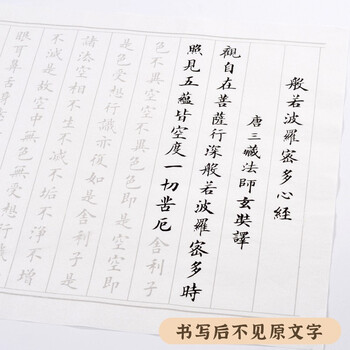 般若波羅密多心經
唐三藏法師玄奘譯
觀自在菩薩行深般若波羅密多時
照見五蘊皆空度一切苦厄舍利子
色不異空空不異色色即是空空即
是色受想行識亦復如是舍利子是
諸法空相不生不滅不垢不淨不增
不減是故空中無色無受想行
眼耳鼻舌
书写后不见原文字